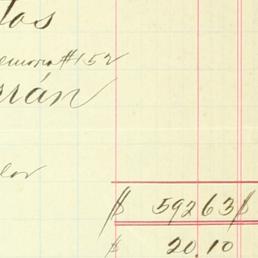 tos
emoria #152
rrán
lor
$ 592 63 $
$ 20.10